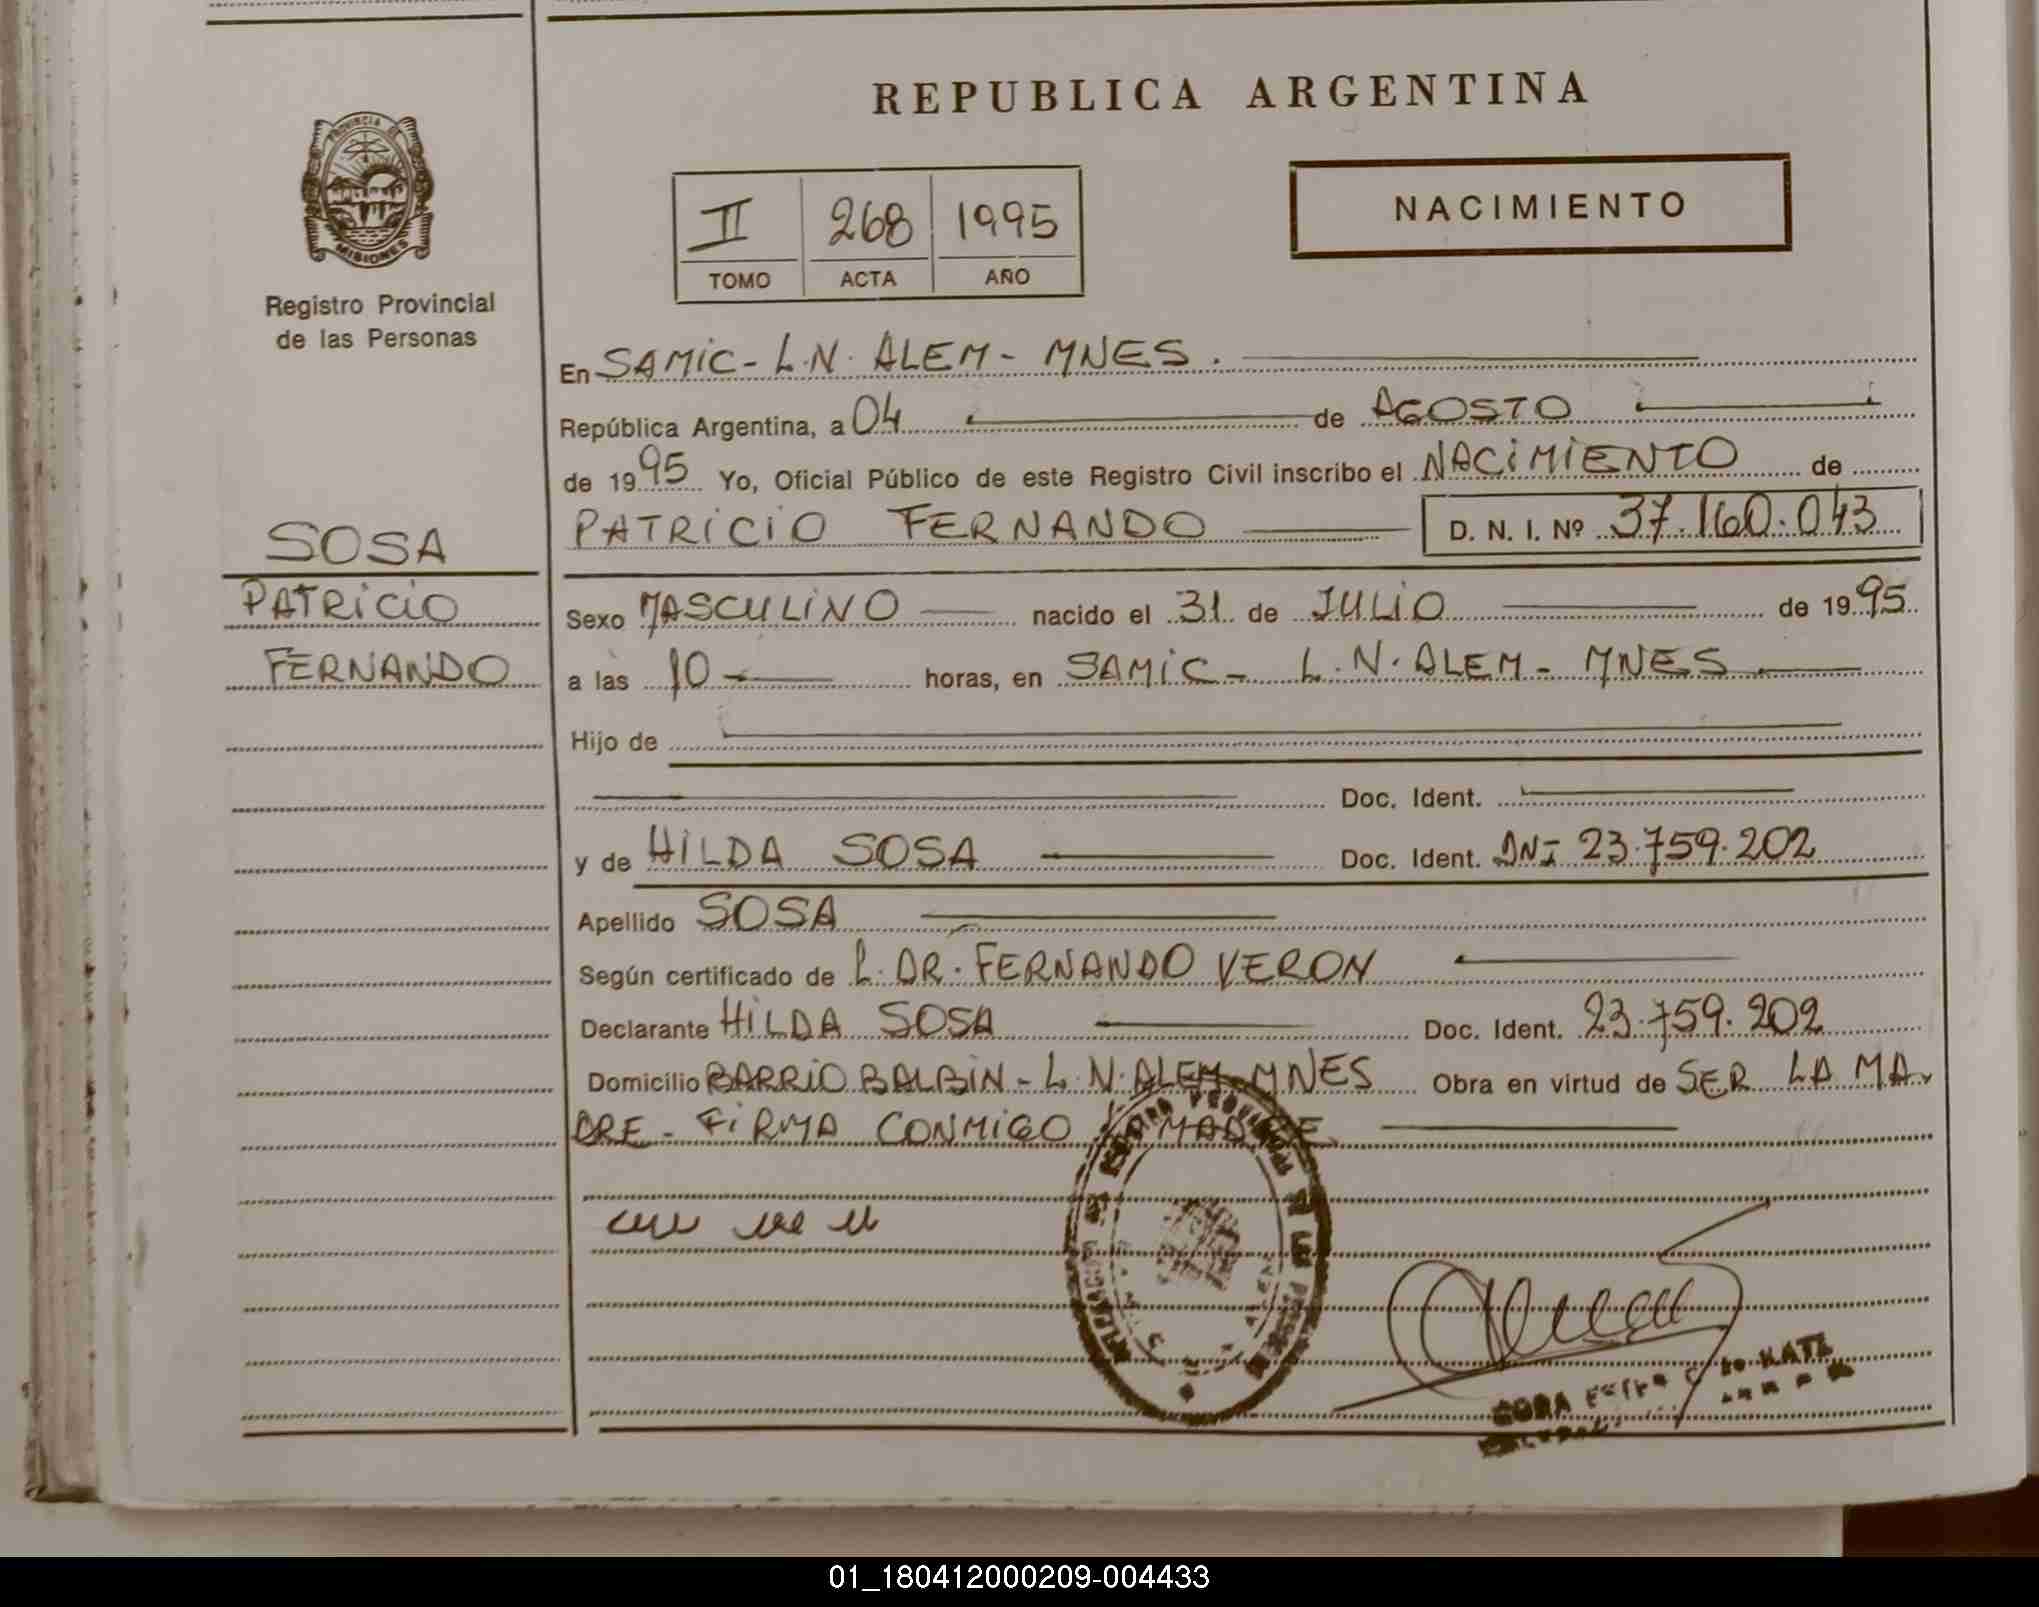 REPUBLICA ARGENTINA
PROVINCIA DE
MISIONES
Registro Provincial
de las Personas
II 268 1995
TOMO ACTA AÑO
NACIMIENTO
En SAMIC - L.N. ALEM - MNES.
República Argentina, a 04 de AGOSTO
de 1995 Yo, Oficial Público de este Registro Civil inscribo el NACIMIENTO de
PATRICIO FERNANDO D. N. I. Nº 37.160.043
SOSA
PATRICIO
FERNANDO
Sexo MASCULINO nacido el 31 de JULIO de 1995
a las 10 horas, en SAMIC - L.N. ALEM - MNES
Hijo de
Doc. Ident.
y de HILDA SOSA Doc. Ident. DNI 23.759.202
Apellido SOSA
Según certificado de L. DR. FERNANDO VERON
Declarante HILDA SOSA Doc. Ident. 23.759.202
Domicilio BARRIO BALBIN - L.N. ALEM - MNES Obra en virtud de SER LA MA
DRE - FIRMA CONMIGO LA MADRE
01_180412000209-004433